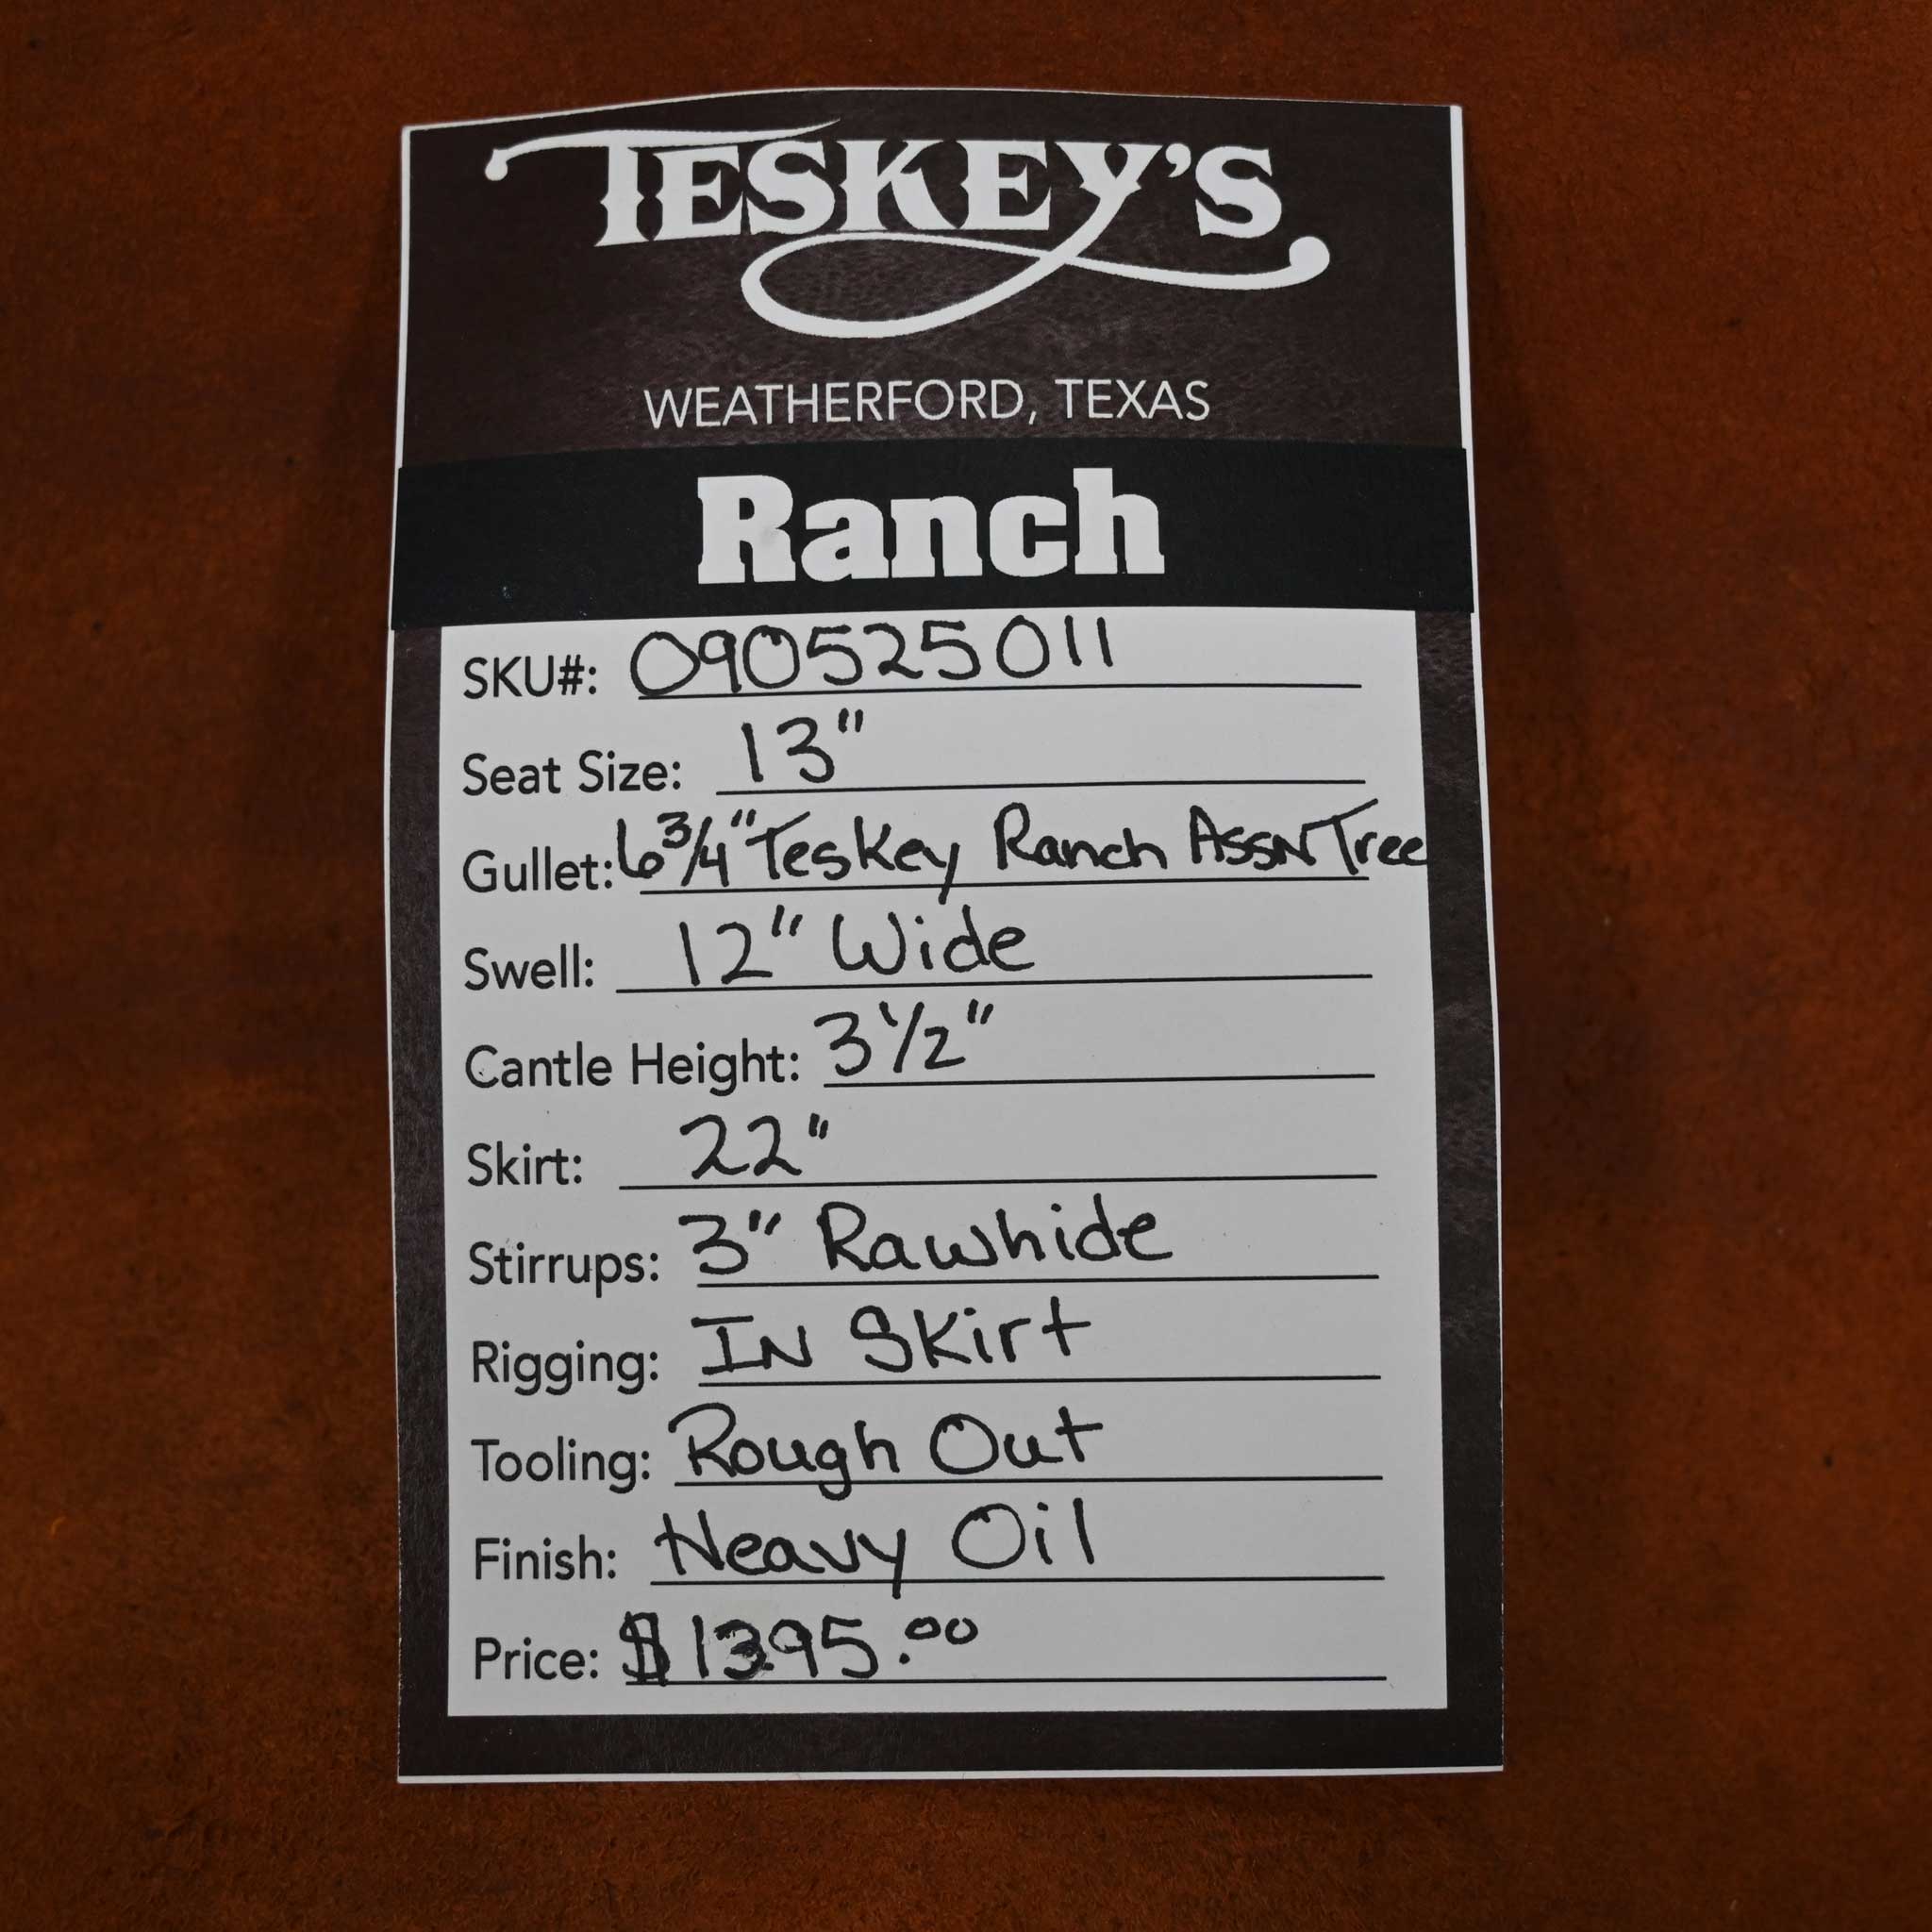 TESKEY'S
WEATHERFORD, TEXAS
Ranch
SKU#: 090525011
Seat Size: 13"
Gullet: 6 3/4" Teskey Ranch Assn Tree
Swell: 12" Wide
Cantle Height: 3 1/2"
Skirt: 22"
Stirrups: 3" Rawhide
Rigging: IN Skirt
Tooling: Rough Out
Finish: Heavy Oil
Price: $1395.00